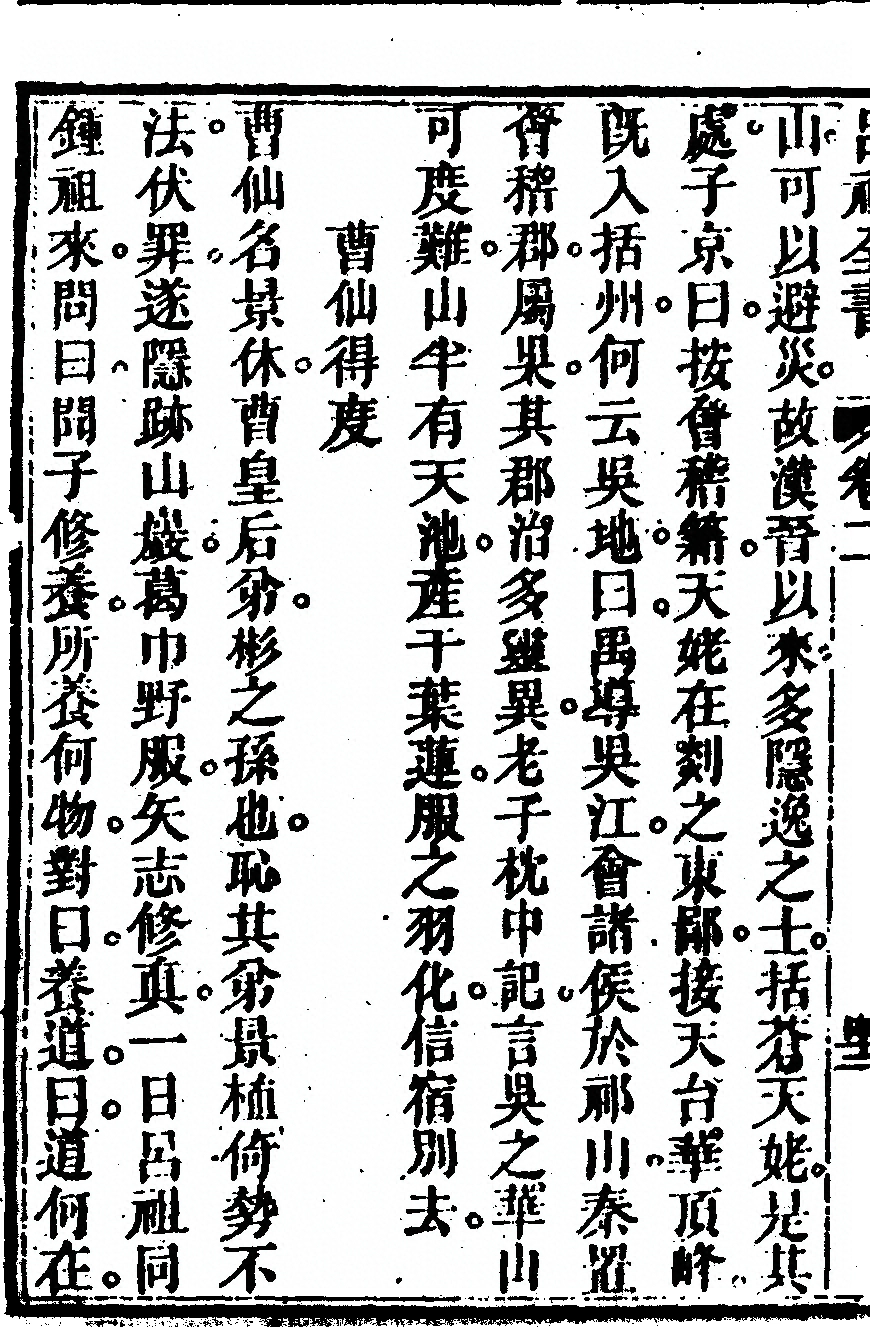 呂祖全書 卷二
山可以避災故漢晉以來多隱逸之士括蒼天姥是其
處子京曰按會稽籍天姥在剡之東鄙接天台華頂峰
旣入括州何云吳地曰禹導吳江會諸侯於祁山秦置
會稽郡屬吳其郡治多靈異老子枕中記言吳之華山
可度難山半有天池產千葉蓮服之羽化信宿別去
曹仙得度
曹仙名景休曹皇后弟彬之孫也恥其弟景植倚勢不
法伏罪遂隱跡山巖葛巾野服矢志修眞一日呂祖同
鍾祖來問曰聞子修養所養何物對曰養道曰道何在